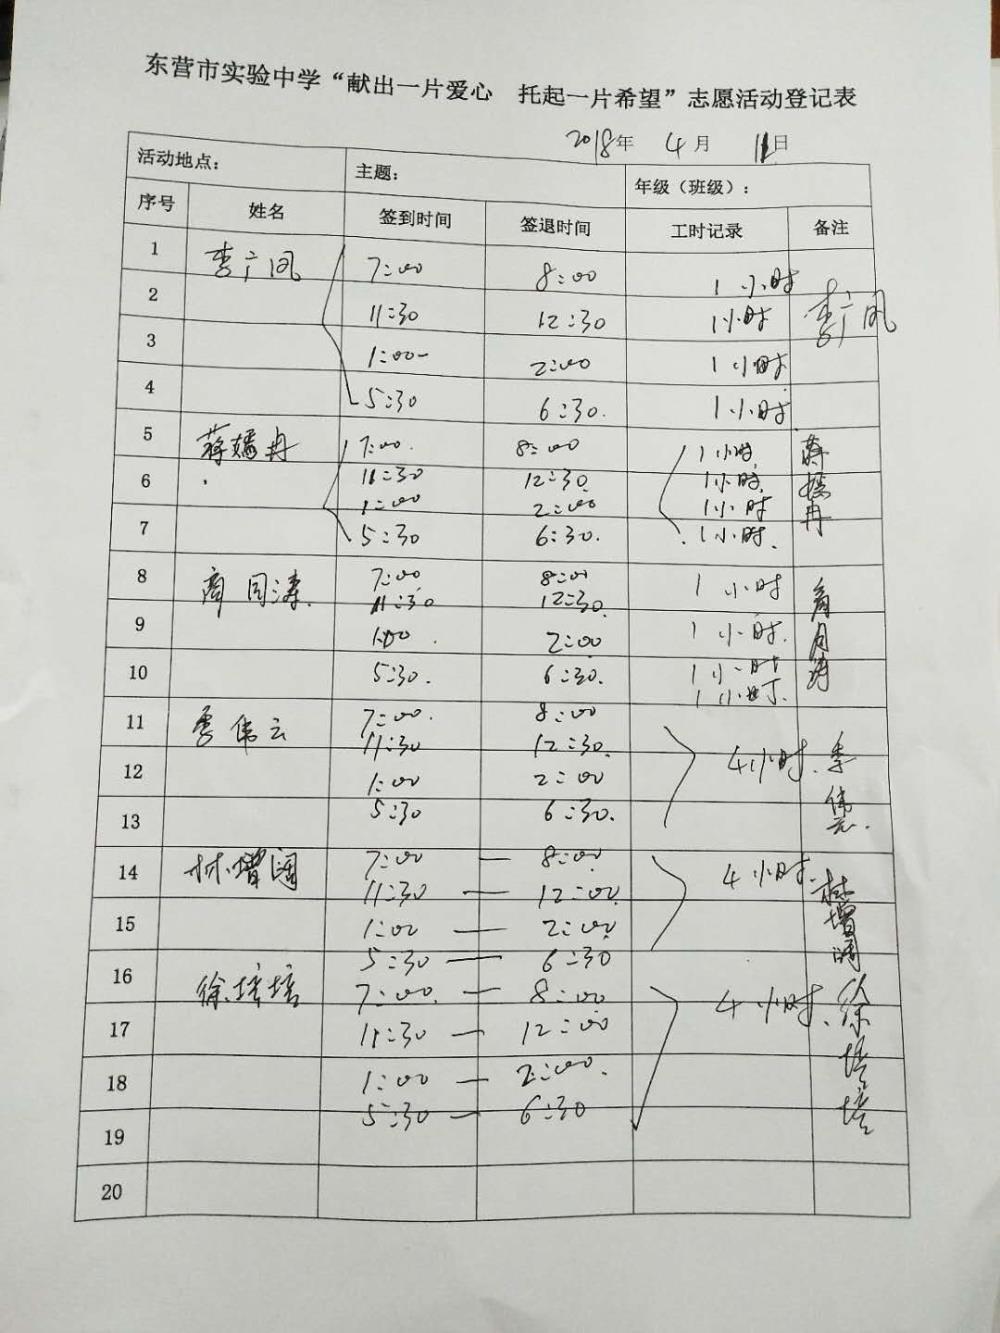 东营市实验中学“献出一片爱心 托起一片希望”志愿活动登记表
2018年 4月 11日
活动地点： 主题： 年级（班级）：
序号 姓名 签到时间 签退时间 工时记录 备注
1 李广凤 7:00 8:00 1小时 李广凤
2 11:30 12:30 1小时
3 1:00- 2:00 1小时
4 5:30 6:30. 1小时
5 蒋嫣冉 7:00. 8:00 1小时 蒋嫣冉
6 11:30 12:30. 1小时.
1:00 2:00 1小时
7 5:30 6:30. 1小时.
8 商同涛. 7:00. 8:00 1小时
11:30 12:30.
9 1:00. 2:00 1小时.
10 5:30. 6:30. 1小时
1小时.
11 季伟云 7:00. 8:00
11:30 12:30. 4小时. 季伟云.
12 1:00 2:00
13 5:30 6:30.
14 林增阔 7:00 — 8:00. 4小时. 林增阔
11:30 — 12:00.
15 1:00 — 2:00.
16 5:30 — 6:30
徐培培 7:00. — 8:00 4小时. 徐培培
17 11:30 — 12:00
18 1:00 — 2:00.
5:30 — 6:30
19
20